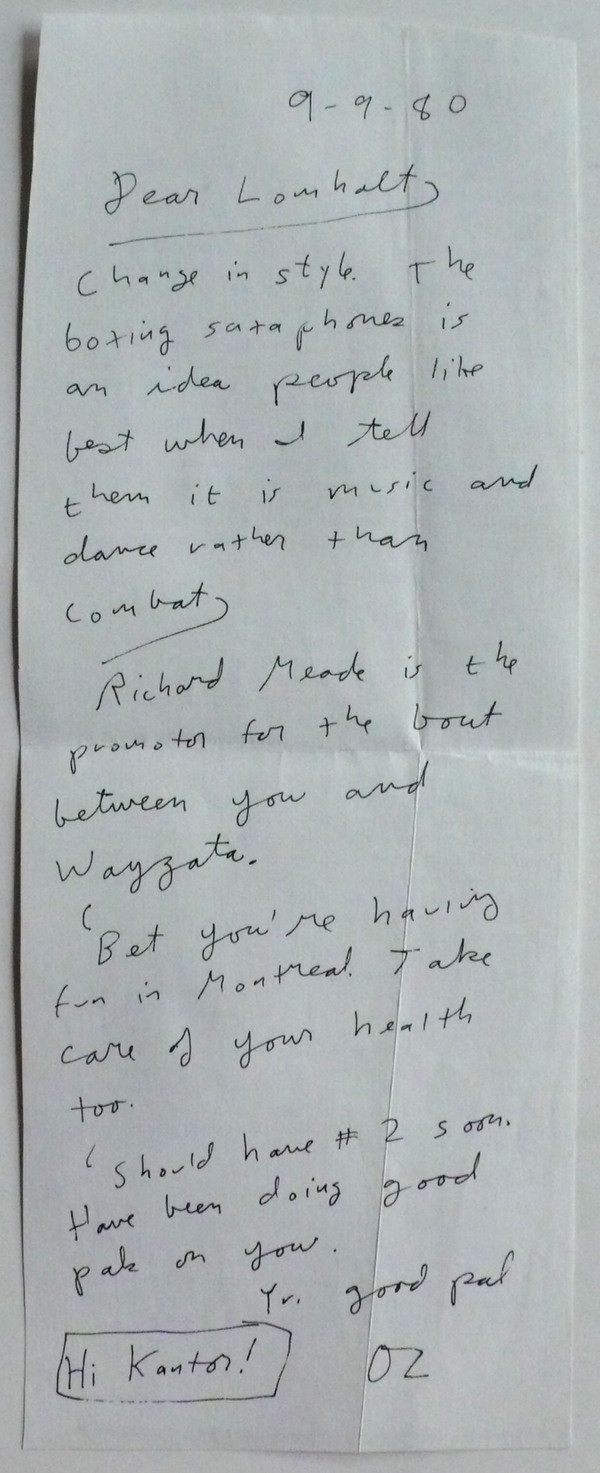 9-9-80
Dear Lomholt,
Change in style. The
boxing saxaphones is
an idea people like
best when I tell
them it is music and
dance rather than
combat,
Richard Meade is the
promotor for the bout
between you and
Wayzata.
Bet you're having
fun in Montreal. Take
care of your health
too.
Should have # 2 soon.
Have been doing good
on you.
Yr. good pal
Hi Kantor! OZ